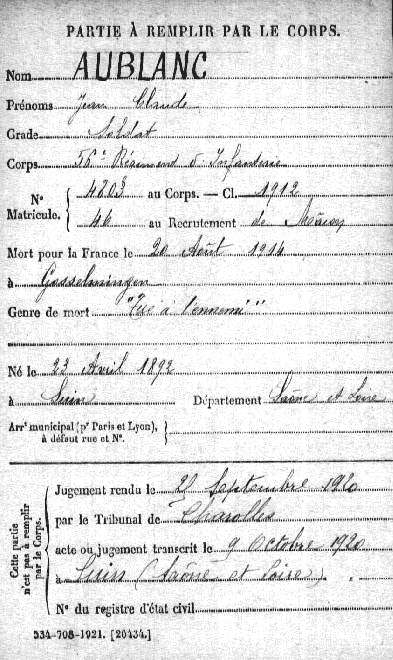 PARTIE À REMPLIR PAR LE CORPS.
Nom AUBLANC
Prénoms Jean Claude
Grade Soldat
Corps 56e Régiment d'Infanterie
N° Matricule. { 4803 au Corps. — Cl. 1912
46 au Recrutement de Mâcon
Mort pour la France le 20 Août 1914
à Gosselmingen
Genre de mort "Tué à l'ennemi"
Né le 23 Avril 1892
à Suin Département Saône et Loire
Arrt municipal (pr Paris et Lyon), à défaut rue et N°. }
Cette partie n'est pas à remplir par le Corps.
Jugement rendu le Septembre 1920
par le Tribunal de Charolles
acte ou jugement transcrit le 9 Octobre 1920
à Suin (Saône et Loire)
N° du registre d'état civil
534-708-1921. [26434.]